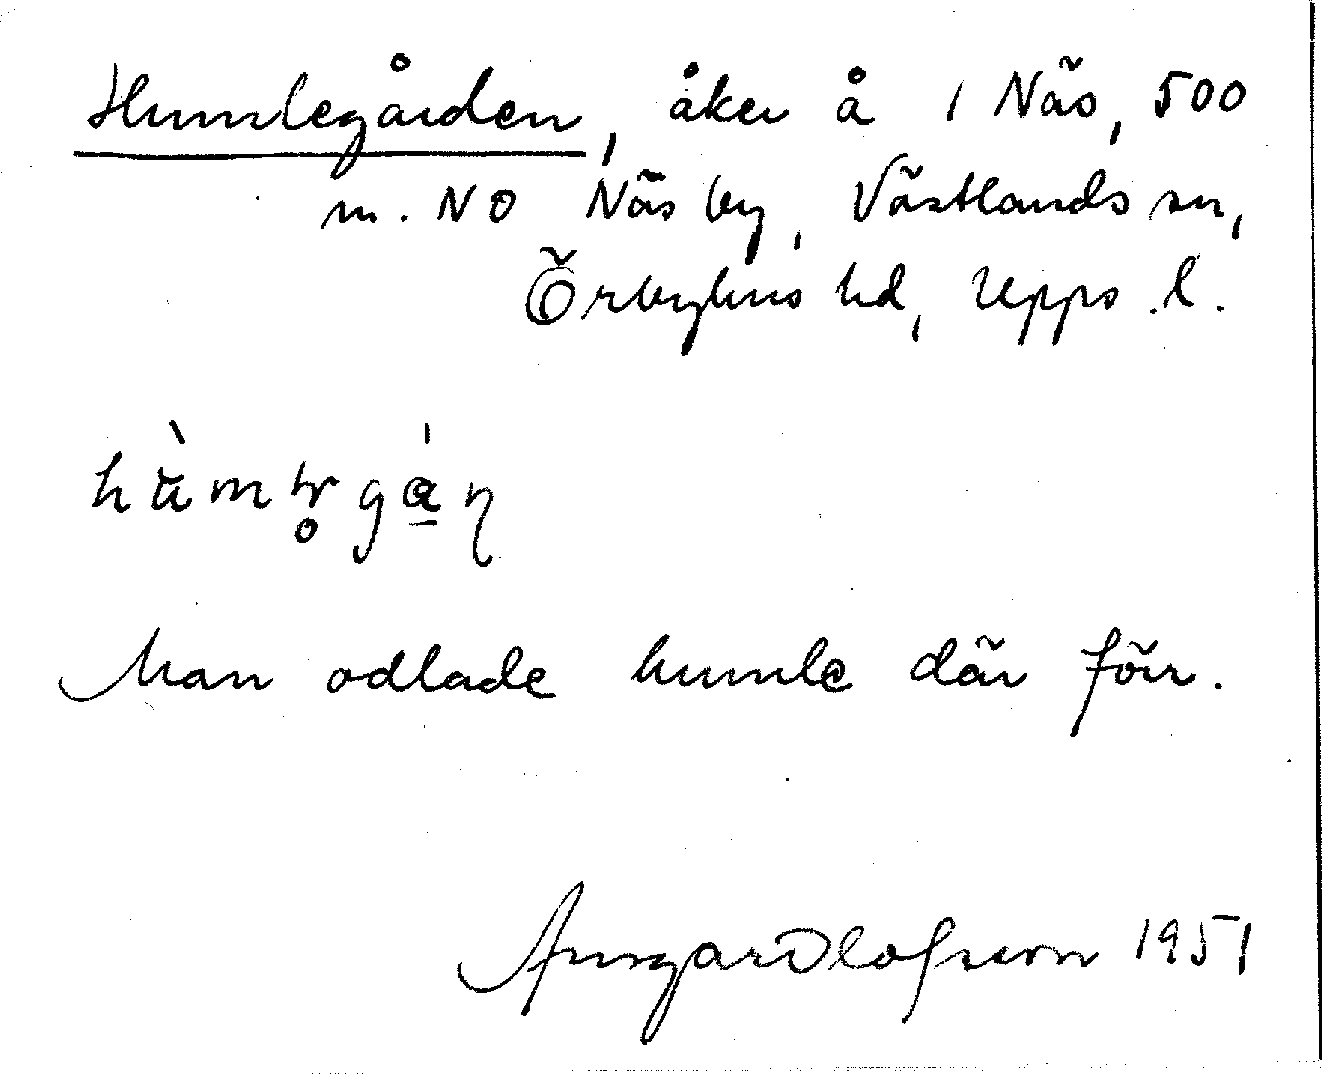 Humlegården, åker å 1 Näs, 500
m. NO Näs by, Västlands sn,
Örbyhus hd, Upps. l.
Man odlade humle där förr.
Ansgar Olofsson 1951